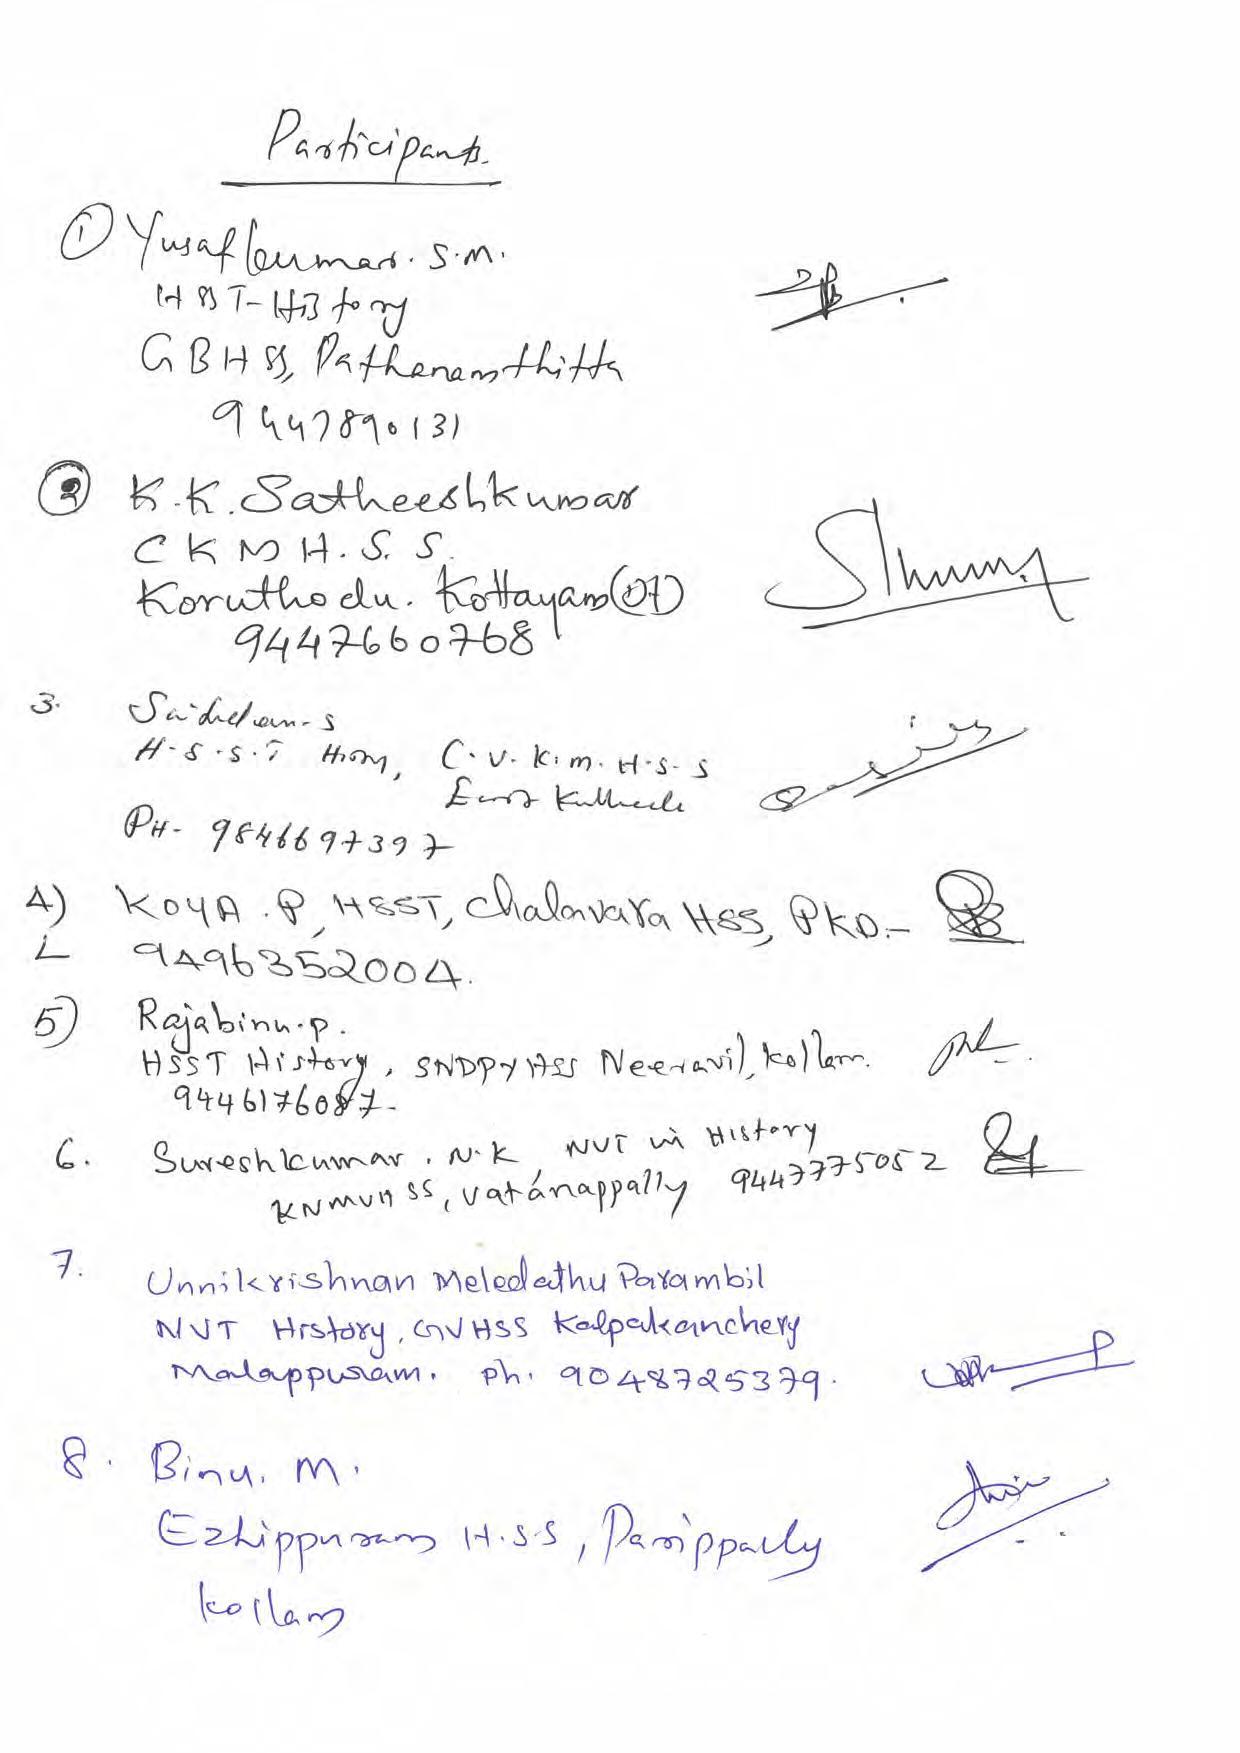 Participants.
① Yusafkumar. S.M.
HSST-History
GBHSS, Pathanamthitta
9447890131
② K.K. Satheeshkumar
CKM H.S.S.
Koruthodu. Kottayam (Dt)
9447660768
3. S
H.S.S.T History, C.V.K.M.H.S.S
East Kallada
PH- 9846697397
4) KOYA.P, HSST, Chalavara HSS, PKD.-
9496352004.
5) Rajabinu.p.
HSST History, SNDPYHSS Neeravil, Kollam.
9446176087-
6. Sureshkumar. N.K, NVT in History
KNMVHSS, Vatanappally 9447775052
7. Unnikrishnan Meledathu Parambil
NVT History, GVHSS Kalpakanchery
Malappuram. Ph. 9048725379.
8. Binu. M.
Ezhippuram H.S.S, Parippally
Kollam